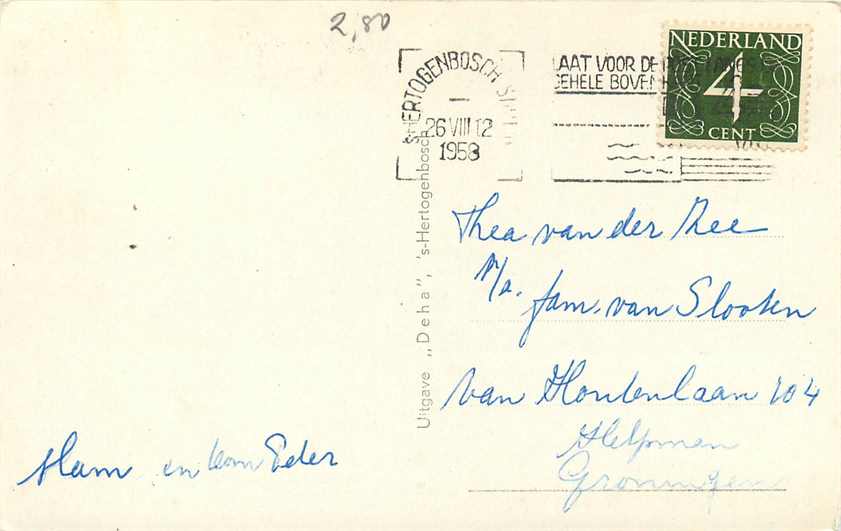 2,80
'S-HERTOGENBOSCH S
26 VIII 12
1958
LAAT VOOR DE
GEHELE BOVEN
NEDERLAND
4
CENT
Uitgave „Deha", 's-Hertogenbosch
Thea van der Zee
p/a. fam. van Slooten
van Houtenlaan 104
Helpman
Groningen
Mam en